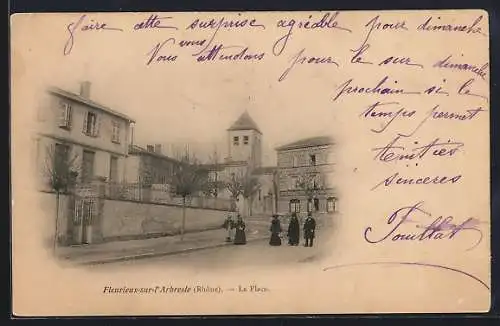 faire cette surprise agréable pour dimanche
vous
Vous attendons pour le sur dimanche
prochain si le
temps permet
sincères
Fleurieux-sur-l'Arbresle (Rhône). — La Place.